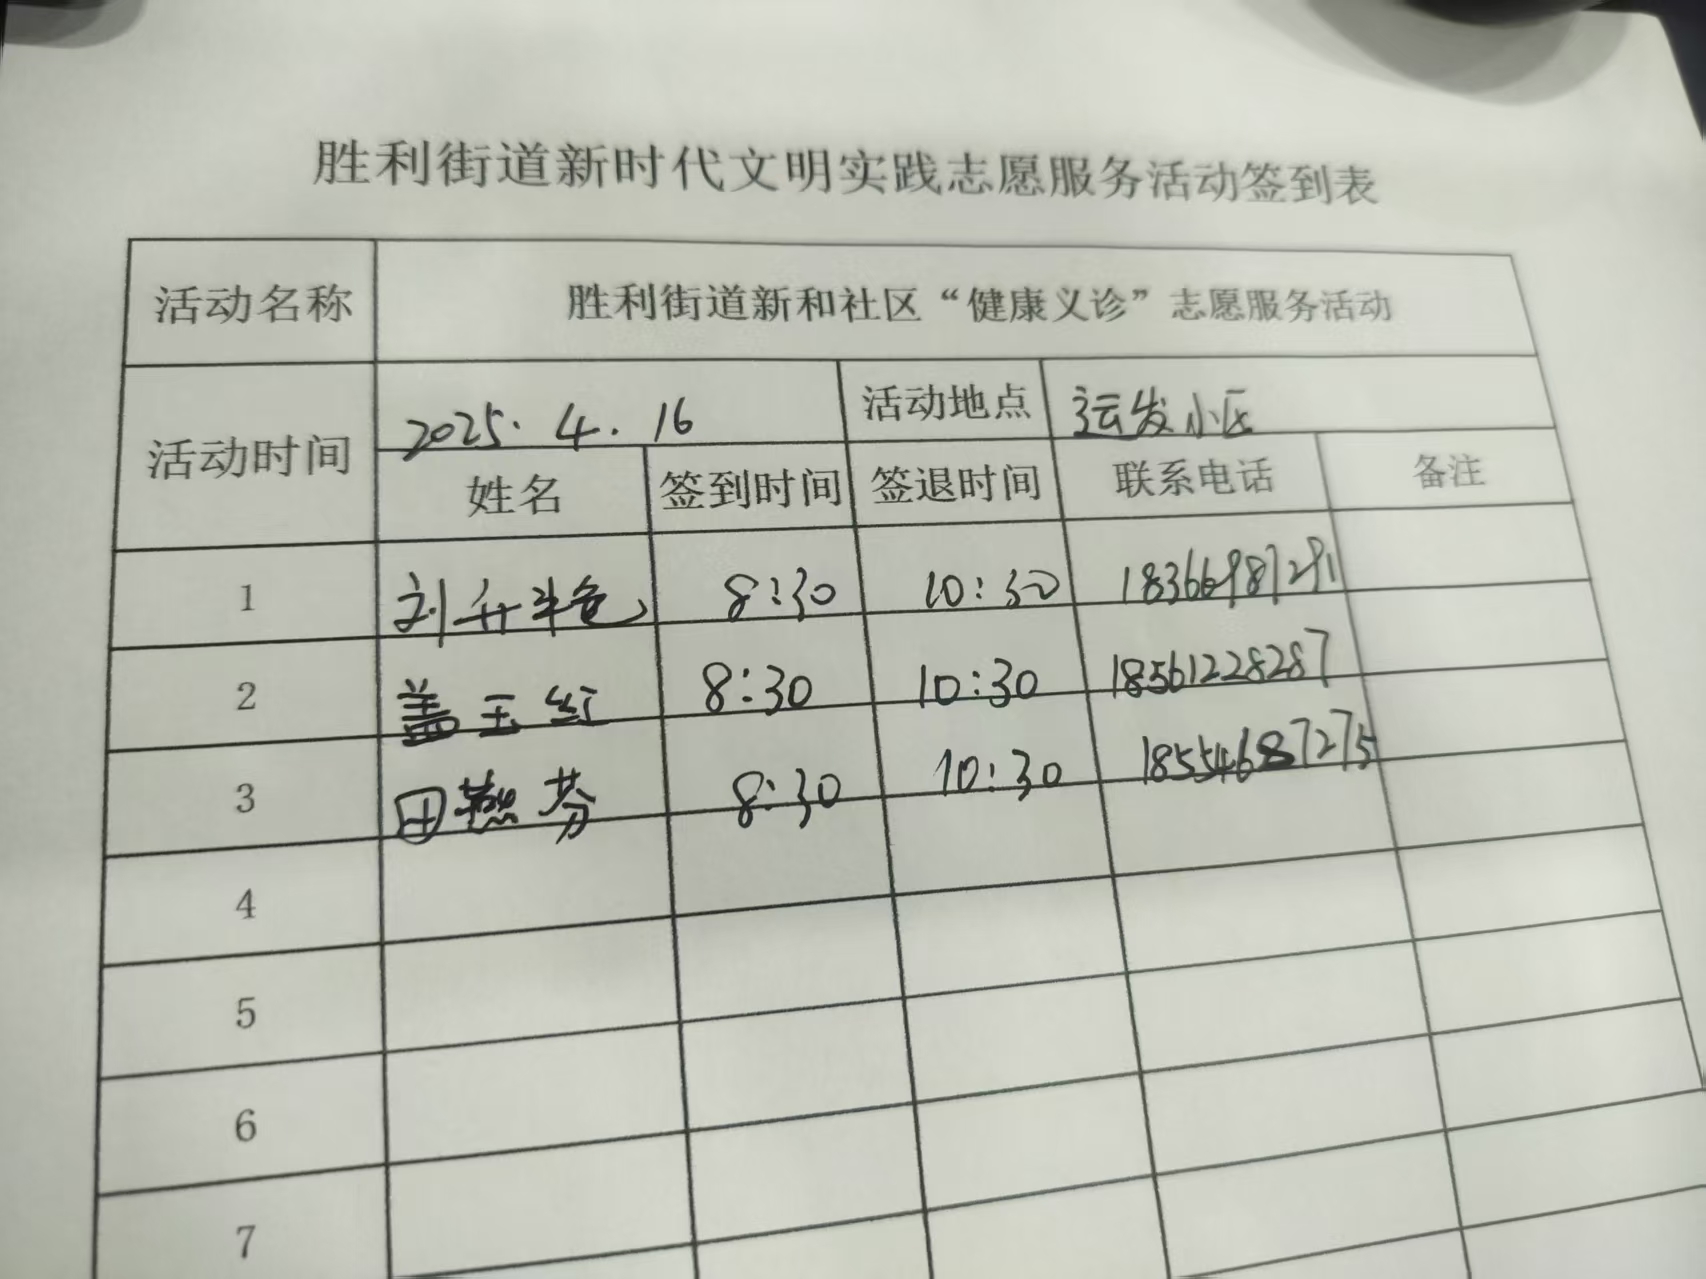 胜利街道新时代文明实践志愿服务活动签到表
活动名称 胜利街道新和社区“健康义诊”志愿服务活动
活动时间 2025.4.16 活动地点 运发小区
姓名 签到时间 签退时间 联系电话 备注
1 刘升艳 8:30 10:30 18366987291
2 盖玉红 8:30 10:30 18561228287
3 田燕芬 8:30 10:30 18554687275
4
5
6
7